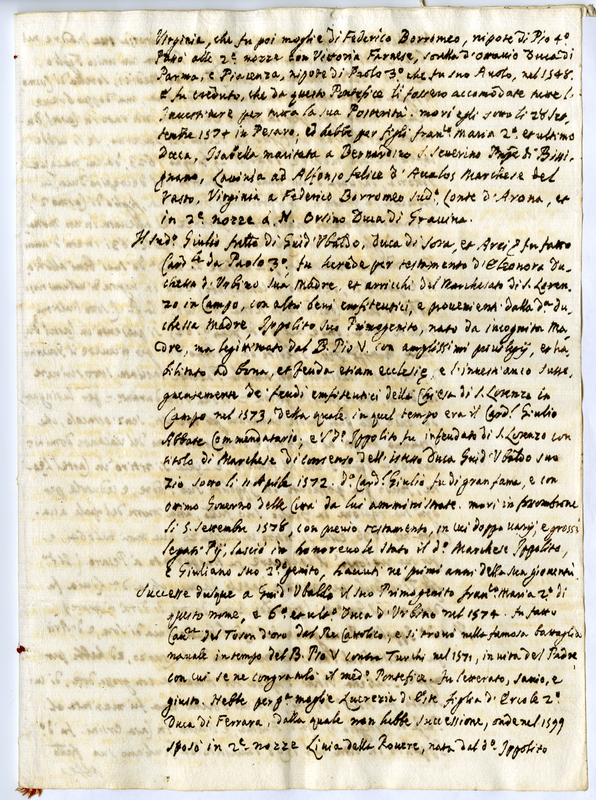 Virginia, che fu poi moglie di Federico Borromeo, nipote di Pio 4.º
Passò alle 2.e nozze con Vittoria Farnese, sorella d'Ottavio Duca di
Parma, e Piacenza, nipote di Paolo 3.º che fu suo Avolo, nel 1548.
E fu creduto, che da questo Pontefice li fossero accomodate tutte l'
Investiture per tutta la sua Posterità. morì egli sotto li 28 Set-
tembre 1574 in Pesaro, ed hebbe per figli fran.co Maria 2.º et ultimo
Duca, Isabella maritata a Bernardino S. Severino Pnpe di Bisi-
gnano, Lavinia ad Alfonso felice d'Avalos Marchese del
Vasto, Virginia a Federico Borromeo sud.º Conte d'Arona, et
in 2.e nozze à N. Orsino Duca di Gravina.
Il sud.º Giulio fratello di Guid'Ubaldo, Duca di Sora, et Arci, fu fatto
Card.le da Paolo 3.º, fu herede per testamento d'Eleonora Du-
chessa d'Urbino sua Madre, et arricchì del Marchesato di S. Loren-
zo in Campo, con altri beni emfiteutici, e provenienti dalla d.a du-
chessa Madre, Ippolito suo Primogenito, nato da incognita Ma-
dre, ma legitimato dal B. Pio V. con amplissimi privilegij, et ha-
bilitato ad bona, et feuda etiam ecclesię, e l'investì anco susse-
guentemente de' feudi emfiteutici della Chiesa di S. Lorenzo in
Campo nel 1573, della quale in quel tempo era il Card.l Giulio
Abbate Commendatario; e l'd.º Ippolito fu infeudato di S. Lorenzo con
titolo di Marchese di consenso dell'istesso Duca Guid'Ubaldo suo
zio sotto li 11 Aprile 1572. d.º Card.l Giulio fu di gran fama, e con
ottimo Governo delle Città da lui amministrate. morì in fossombrone
li 5. Settembre 1578, con previo testamento, in cui doppo varij, e grossi
legati Pij, lasciò in honorevole stato il d.º Marchese Ippolito,
e Giuliano suo 2.dogenito, havuti ne' primi anni della sua gioventù.
Successe dunque a Guid'Ubaldo il suo Primogenito fran.co Maria 2.º di
questo nome, e 6.º et ult.º Duca d'Urbino nel 1574. fu fatto
Cav.re del Toson d'oro dal Re Cattolico, e si trovò nella famosa battaglia
navale in tempo del B. Pio V contro Turchi nel 1571, in vita del Padre
con cui se ne congratulò il med.º Pontefice. fu letterato, savio, e
giusto. Hebbe per p.a moglie Lucrezia d'Este figlia d'Ercole 2.º
Duca di Ferrara, dalla quale non hebbe successione, onde nel 1599
sposò in 2.e nozze Livia della Rovere, nata dal d.º Ippolito